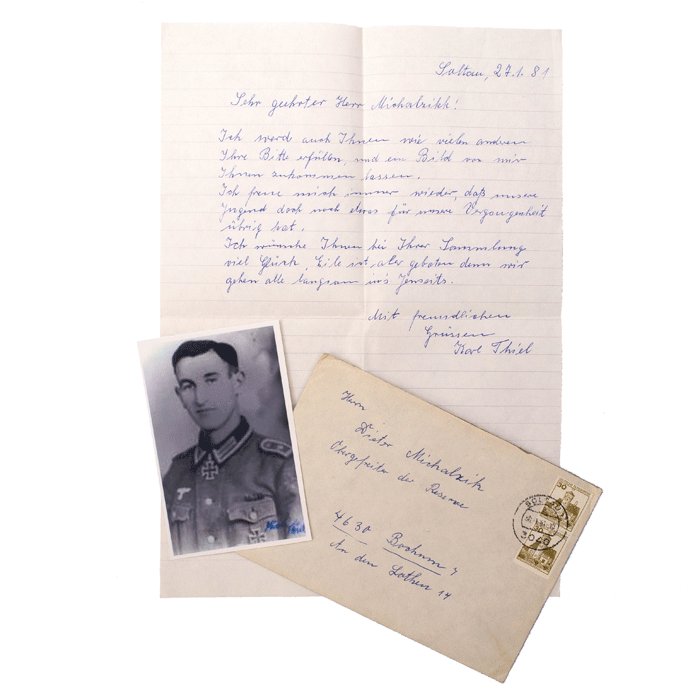 Soltau, 27.1.81
Sehr geehrter Herr Michalzikk!
Ich werd auch Ihnen wie vielen anderen
Ihre Bitte erfüllen, und ein Bild von mir
Ihnen zukommen lassen.
Ich freue mich immer wieder, daß unsere
Jugend doch noch etwas für unsere Vergangenheit
übrig hat.
Ich wünsche Ihnen bei Ihrer Sammlung
viel Glück, Eile ist aber geboten denn wir
gehen alle langsam ins Jenseits.
Mit freundlichen
Grüssen
Karl Thiel
Herrn
Dieter Michalzik
Obergefreiter der Reserve
4630 Bochum 7
An den Lothen 14
3040
50